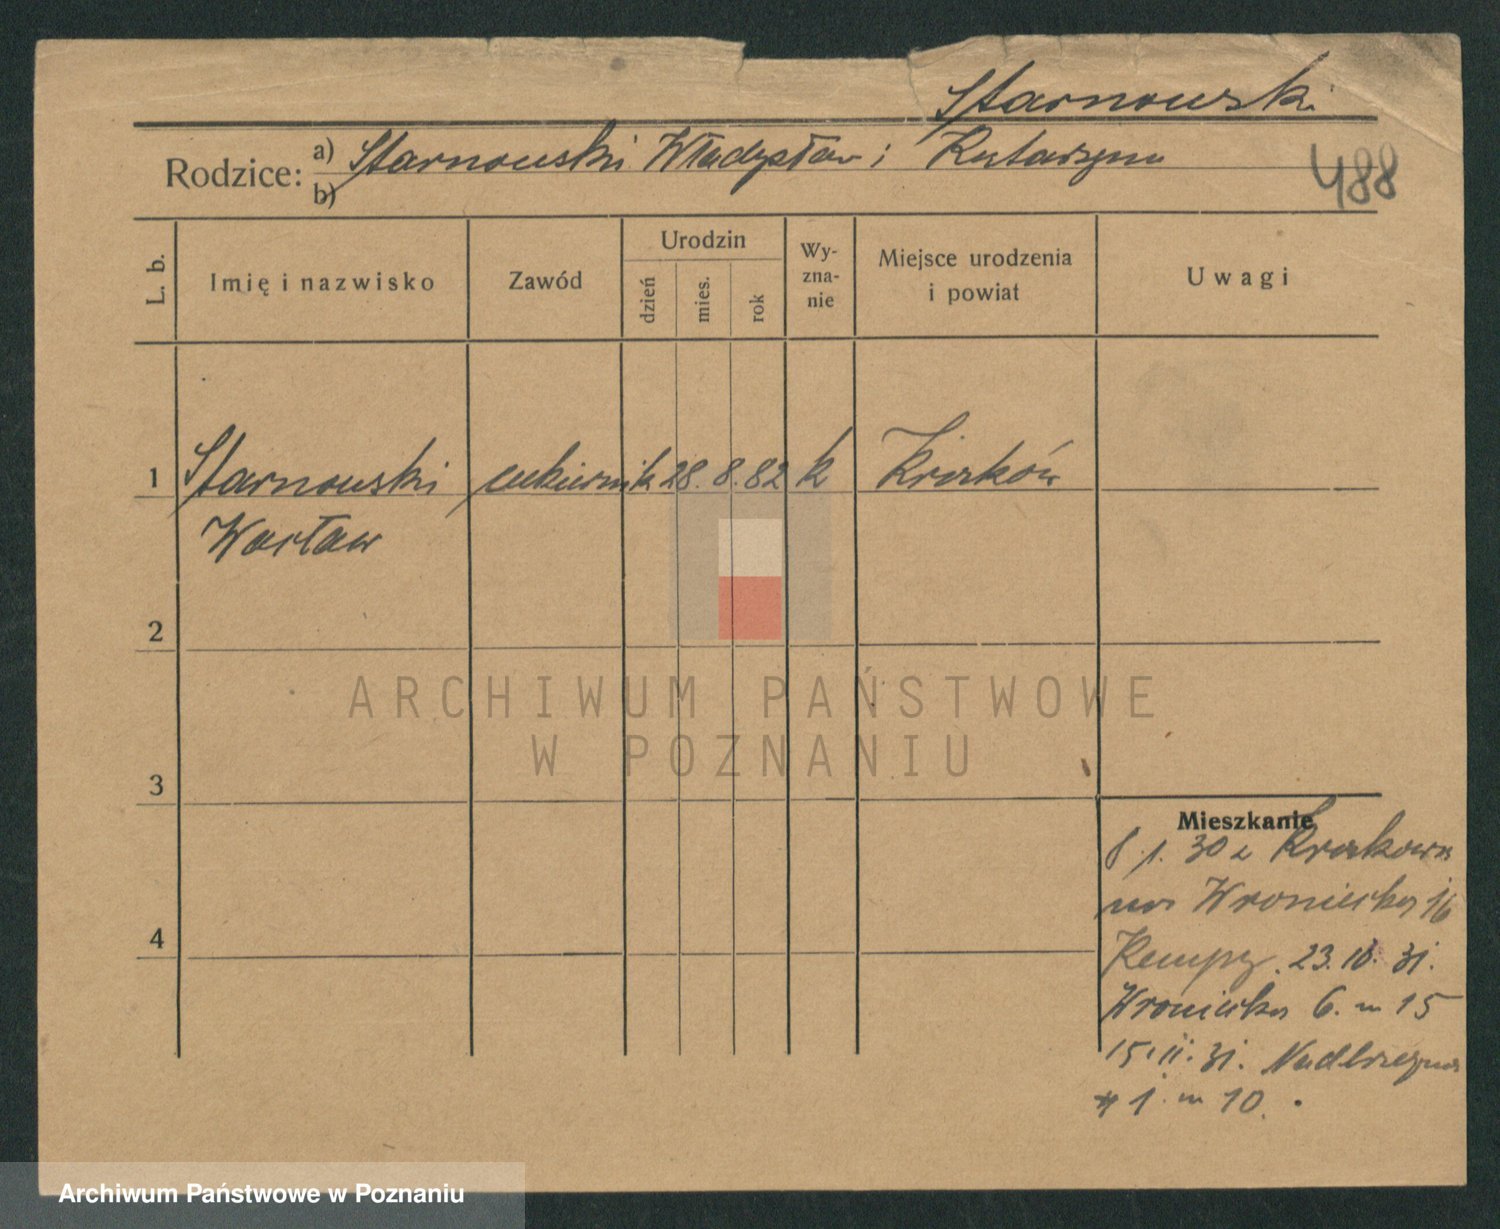 Starnowski
Rodzice: a) Starnowski Władysław i Katarzyna
b)
488
L. b.
Imię i nazwisko
Zawód
Urodzin
dzień
mies.
rok
Wy-
zna-
nie
Miejsce urodzenia
i powiat
Uwagi
1 Starnowski cukiernik 28. 8. 82 k Kraków
Wacław
2
3
4
Mieszkanie
30 z Krakowa
na Wroniecka 16
Kempy. 23. 31.
Wroniecka 6. m 15
15. II. 31. Nadbrzeżna
1. m 10.
ARCHIWUM PAŃSTWOWE
W POZNANIU
Archiwum Państwowe w Poznaniu